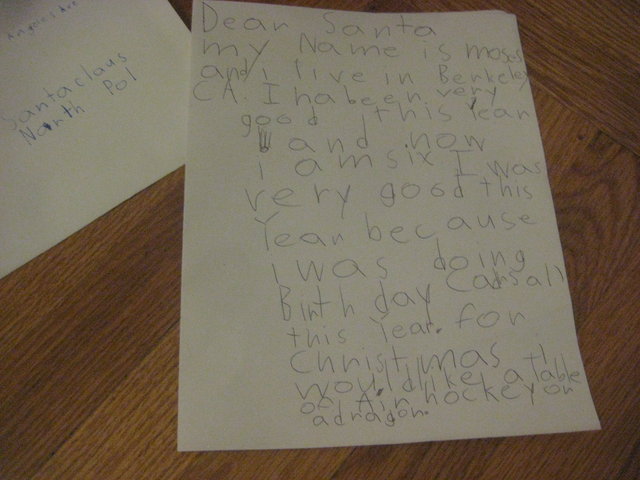 Angeles Ave
Santa claus
North Pol
Dear Santa
my Name is moses
and i live in Berkeley
CA. I ha been very
good this Year
and now
i am six I was
very good this
Year because
i was doing
Birthday Cards all
this Year. for
christmas I
would like a Table
of Air hockey or
a dragon.